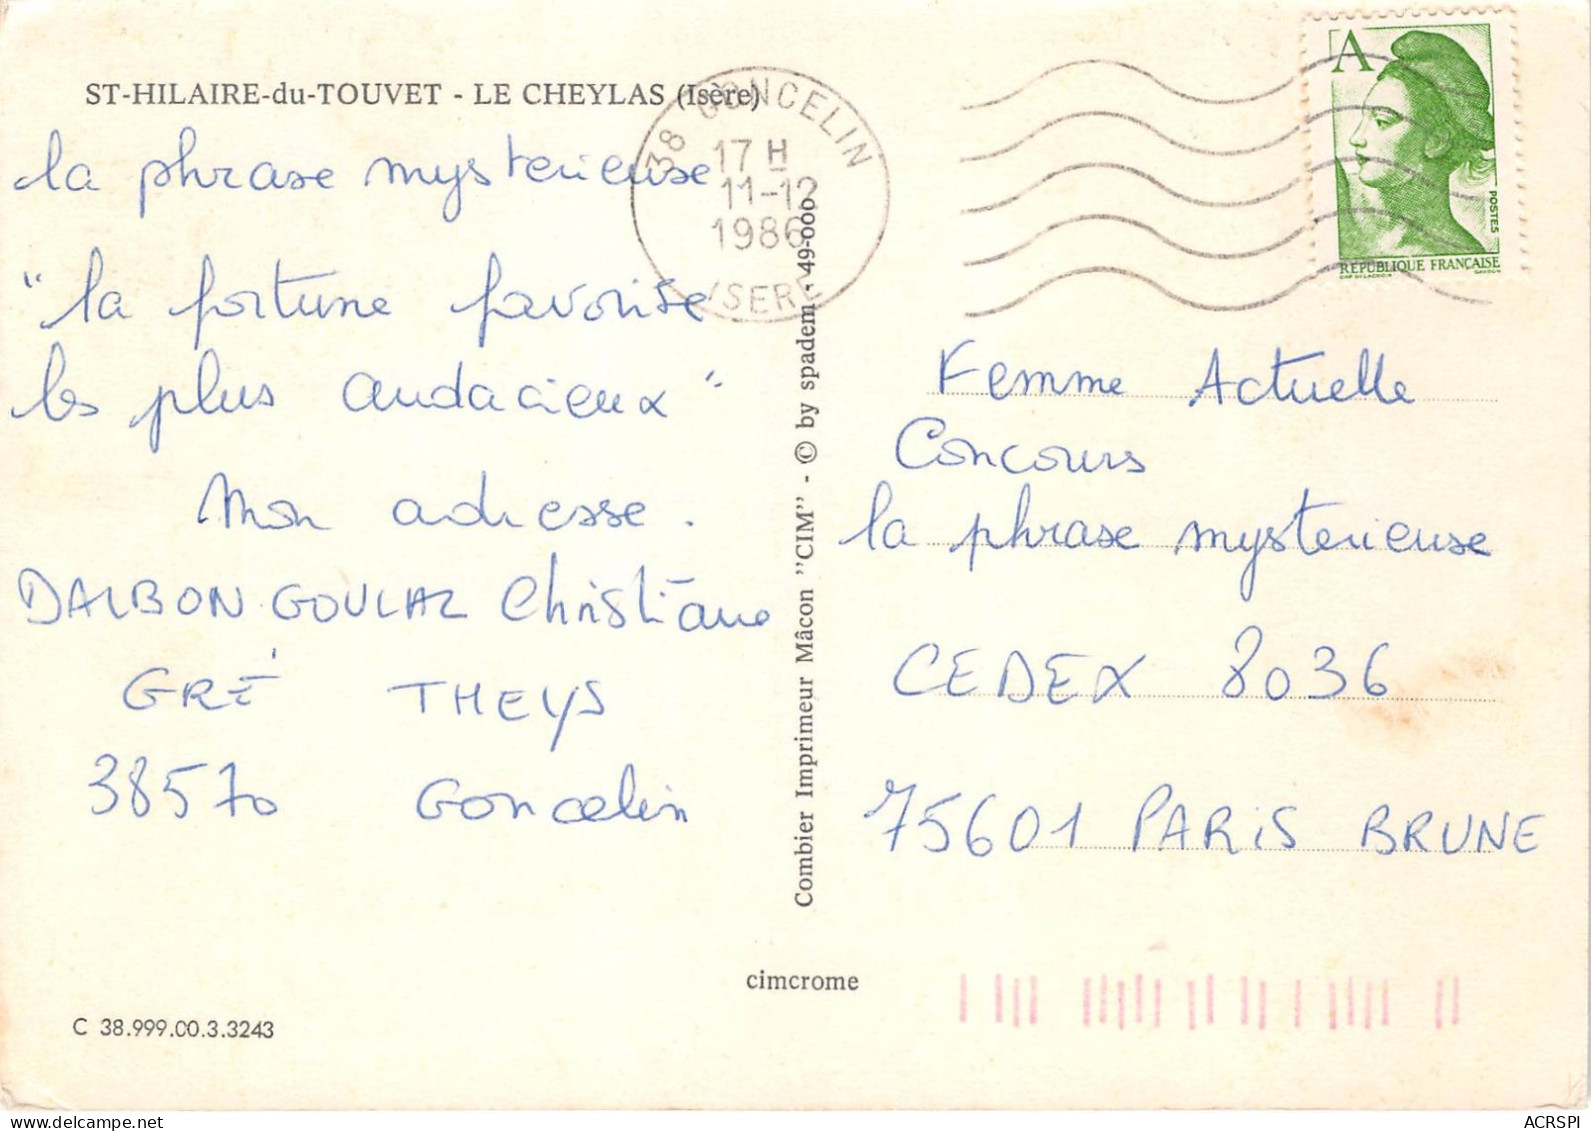 ST-HILAIRE-du-TOUVET - LE CHEYLAS (Isère)
la phrase mysterieuse
"la fortune favorise
les plus audacieux"
Mon adresse.
DALBON GOULAZ Christiane
GRÉ THEYS
38570 Goncelin
C 38.999.00.3.3243
Combier Imprimeur Mâcon "CIM" - © by spadem - 49-000
cimcrome
38 GONCELIN
17 H
11-12
1986
ISERE
A
POSTES
RÉPUBLIQUE FRANÇAISE
Femme Actuelle
Concours
la phrase mysterieuse
CEDEX 8036
75601 PARIS BRUNE
ACRSPI